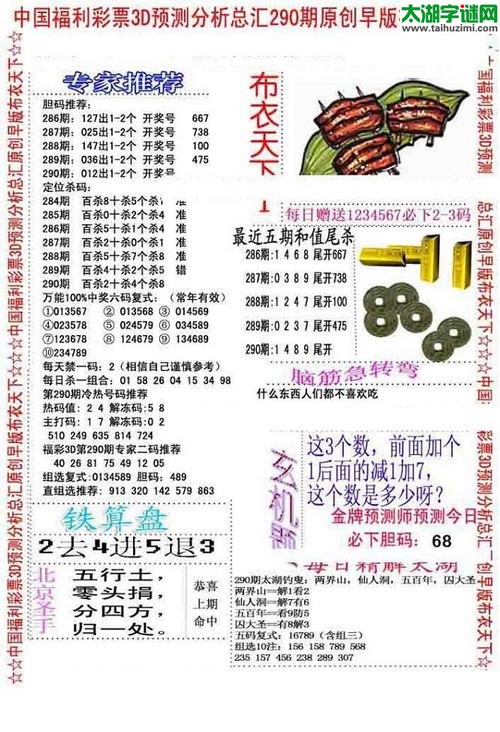 中国福利彩票3D预测分析总汇290期原创早版
太湖字谜网
www.taihuzimi.com
专家推荐
胆码推荐:
286期: 127出1-2个 开奖号 667
287期: 025出1-2个 开奖号 738
288期: 147出1-2个 开奖号 100
289期: 036出1-2个 开奖号 475
290期: 012出1-2个 开奖号
定位杀码:
284期 百杀8十杀5个杀1 准
285期 百杀0十杀1个杀4 准
286期 百杀0十杀2个杀4 准
288期 百杀5十杀7个杀8 准
289期 百杀4十杀2个杀5 错
290期 百杀2十杀4个杀8
万能100%中奖六码复式: (常年有效)
①013567 ②013568 ③014569
④023578 ⑤024579 ⑥034586
⑦123678 ⑧124679 ⑨134689
⑩234789
每天禁一码: 2 (相信自己谨慎参考)
每日杀一组合: 01 58 26 04 15 34 98
第290期冷热号码推荐
热码值: 2 4 解冻码: 5 8
主打码: 1 7 解冻码: 0 2
510 249 635 814 724
福彩3D第290期专家二码推荐
40 26 81 75 49 12 05
组选复式: 0134589 胆码: 489
直组选推荐: 913 320 142 579 863
铁算盘
2去4进5退3
北京圣手
五行土,
零头捐,
分四方,
归一处。
恭喜
上期
命中
布衣天下
每日赠送1234567必下2-3码
最近五期和值尾杀
286期: 1 4 6 8 尾开667
287期: 0 3 8 9 尾开738
288期: 1 2 4 7 尾开100
289期: 0 2 3 7 尾开475
290期: 1 4 8 9 尾开
脑筋急转弯
什么东西人们都不喜欢吃
玄机题
这3个数,前面加个
1后面的减1加7,
这个数是多少呀?
金牌预测师预测今日
必下胆码: 68
每日精解太湖
290期太湖钓叟: 两界山, 仙人洞, 五百年, 囚大圣
两界山==解1看2
仙人洞==解7有6
五百年==看9防5
囚大圣==有8解3
五码复式: 16789 (含组三)
组选10注: 156 158 789 568
235 157 456 238 289 307
☆☆中国福利彩票3D预测分析总汇原创早版布衣天下☆☆